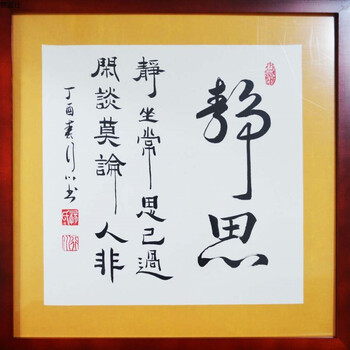 静思
靜坐常思己過
閑談莫論人非
丁酉春月